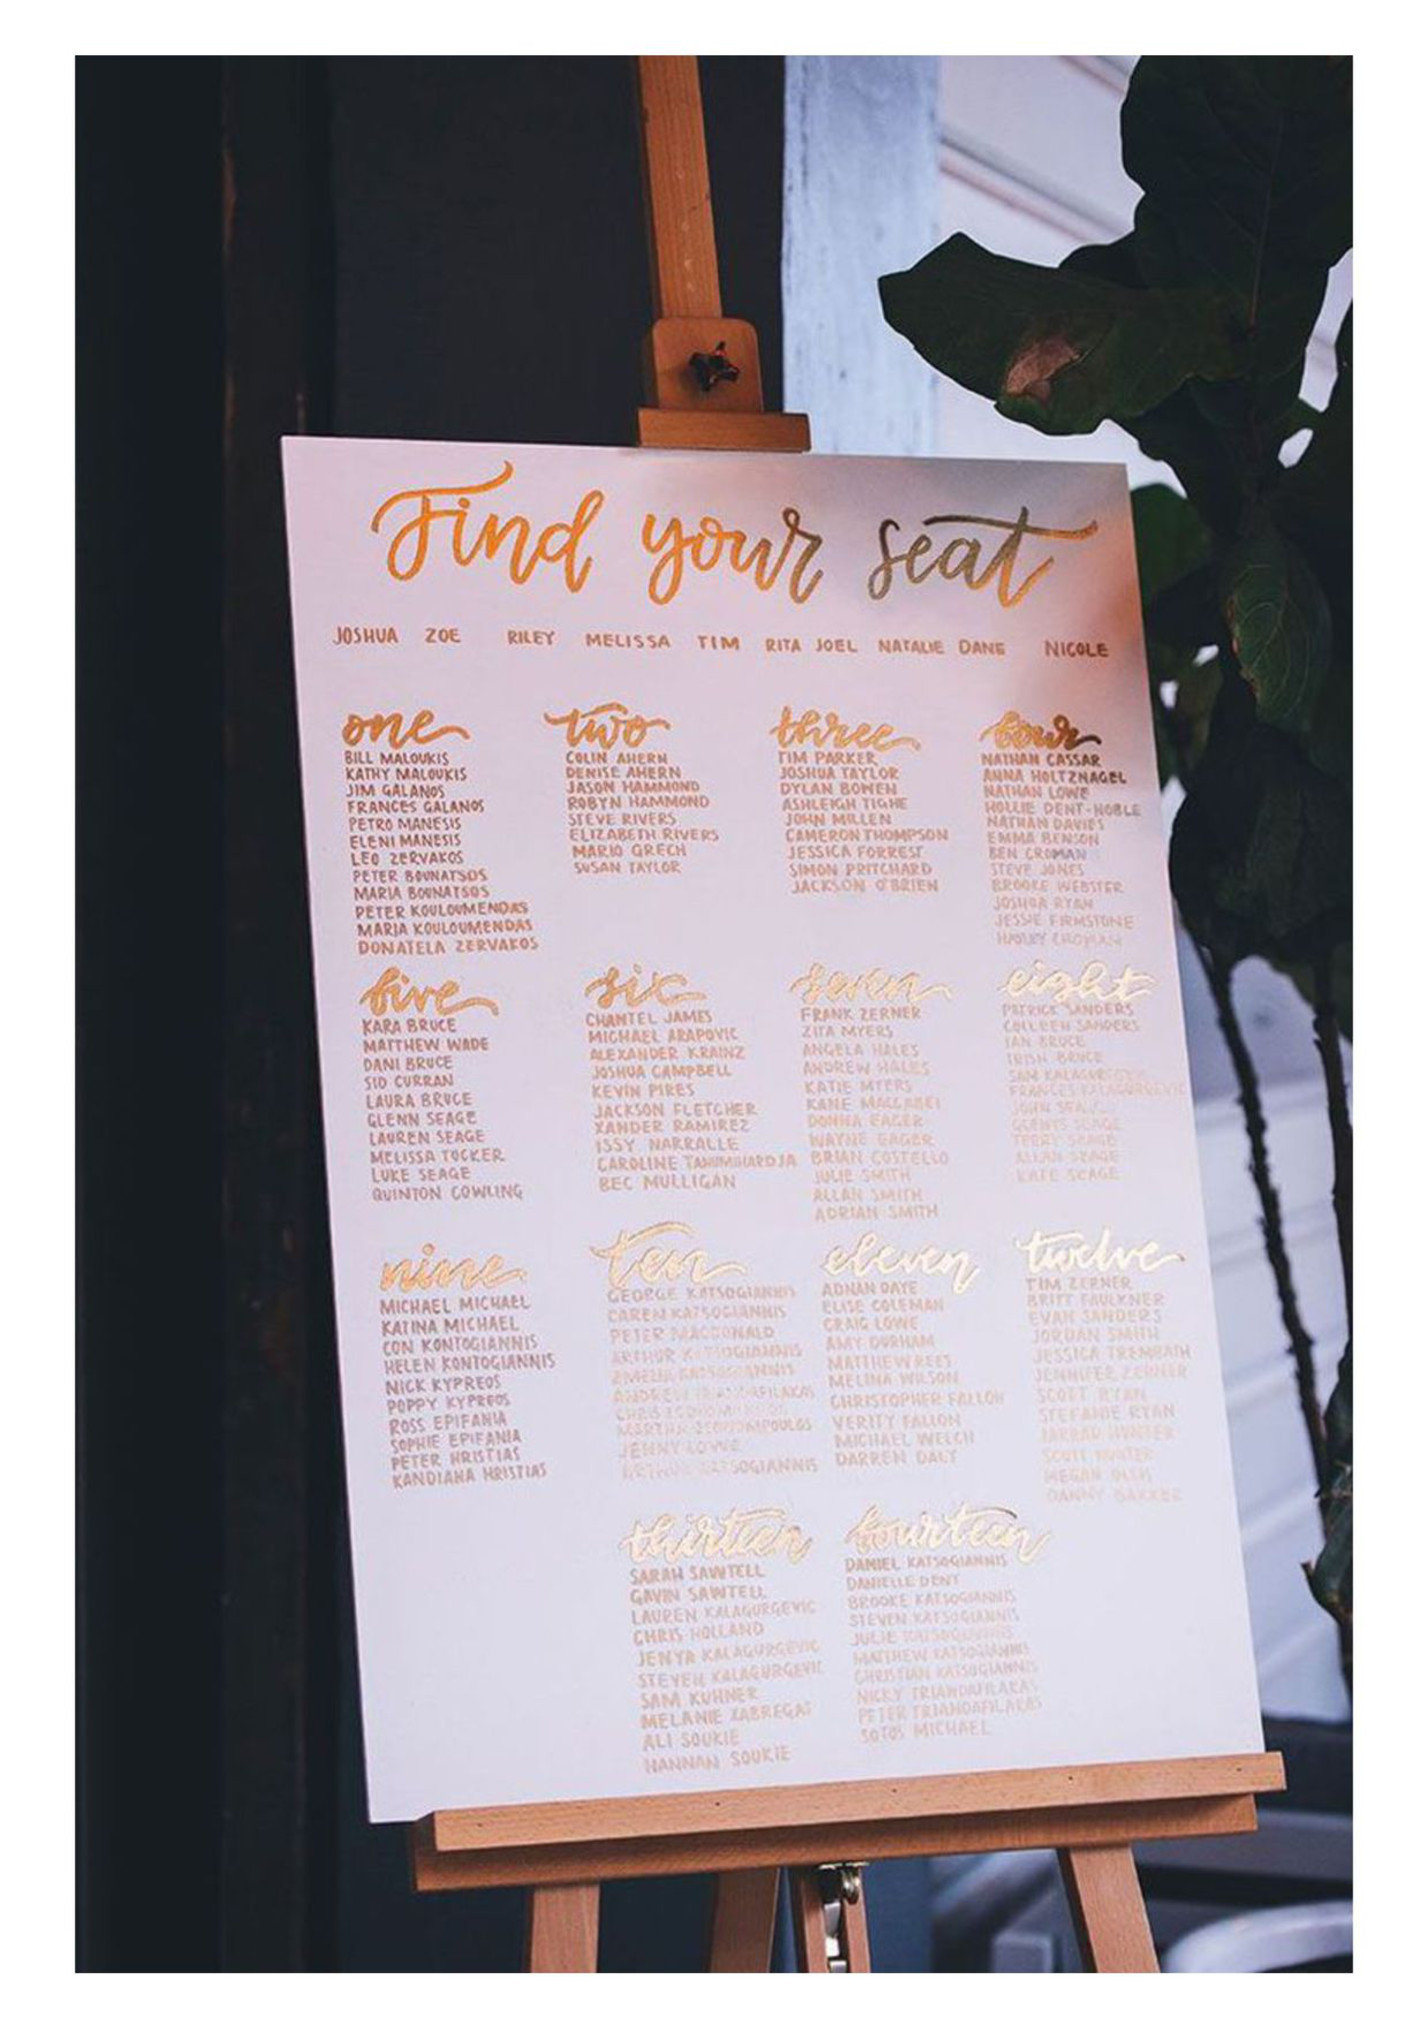 Find your seat
JOSHUA ZOE RILEY MELISSA TIM RITA JOEL NATALIE DANE NICOLE
one
BILL MALOUKIS
KATHY MALOUKIS
JIM GALANOS
FRANCES GALANOS
PETRO MANESIS
ELENI MANESIS
LEO ZERVAKOS
PETER BOUNATSOS
MARIA BOUNATSOS
PETER KOULOUMENDAS
MARIA KOULOUMENDAS
DONATELA ZERVAKOS
two
COLIN AHERN
DENISE AHERN
JASON HAMMOND
ROBYN HAMMOND
STEVE RIVERS
ELIZABETH RIVERS
MARIO GRECH
SUSAN TAYLOR
three
TIM PARKER
JOSHUA TAYLOR
DYLAN BOWEN
ASHLEIGH TIGHE
JOHN MILLEN
CAMERON THOMPSON
JESSICA FORREST
SIMON PRITCHARD
JACKSON O'BRIEN
four
NATHAN CASSAR
ANNA HOLTZNAGEL
NATHAN LOWE
HOLLIE DENT-NOBLE
NATHAN DAVIES
EMMA BENSON
BEN CROMAN
STEVE JONES
BROOKE WEBSTER
JOSHUA RYAN
JESSIE FIRMSTONE
CROMAN
five
KARA BRUCE
MATTHEW WADE
DANI BRUCE
SID CURRAN
LAURA BRUCE
GLENN SEAGE
LAUREN SEAGE
MELISSA TUCKER
LUKE SEAGE
QUINTON COWLING
six
CHANTEL JAMES
MICHAEL ARAPOVIC
ALEXANDER KRAINZ
JOSHUA CAMPBELL
KEVIN PIRES
JACKSON FLETCHER
XANDER RAMIREZ
ISSY NARRALLE
CAROLINE TANUMIHARDJA
BEC MULLIGAN
seven
FRANK ZERNER
ZITA MYERS
ANGELA HALES
ANDREW HALES
KATIE MYERS
KANE
DONNA EAGER
WAYNE EAGER
BRIAN COSTELLO
JULIE SMITH
ALLAN SMITH
ADRIAN SMITH
eight
PATRICK SANDERS
COLLEEN SANDERS
IAN BRUCE
TRISH BRUCE
SAM KALAGURGEVIC
FRANCES KALAGURGEVIC
JOHN SEAGE
GLENYS SEAGE
TERRY SEAGE
ALLAN SEAGE
KATE SEAGE
nine
MICHAEL MICHAEL
KATINA MICHAEL
CON KONTOGIANNIS
HELEN KONTOGIANNIS
NICK KYPREOS
POPPY KYPREOS
ROSS EPIFANIA
SOPHIE EPIFANIA
PETER HRISTIAS
KANDIAHA HRISTIAS
ten
GEORGE KATSOGIANNIS
CAREN KATSOGIANNIS
PETER MACDONALD
ARTHUR KATSOGIANNIS
KATSOGIANNIS
TRIANDAFILAKAS
CHRIS
MARTHA
JENNY LOWE
KATSOGIANNIS
eleven
ADNAN DAYE
ELISE COLEMAN
CRAIG LOWE
AMY DURHAM
MATTHEW REES
MELINA WILSON
CHRISTOPHER FALLON
VERITY FALLON
MICHAEL WELCH
DARREN DALY
twelve
TIM ZERNER
BRITT FAULKNER
EVAN SANDERS
JORDAN SMITH
JESSICA TREMBATH
JENNIFER ZERNER
SCOTT RYAN
STEFANIE RYAN
JARRAD HUNTER
SCOTT HUNTER
MEGAN
DANNY BAKKER
thirteen
SARAH SAWTELL
GAVIN SAWTELL
LAUREN KALAGURGEVIC
CHRIS HOLLAND
JENYA KALAGURGEVIC
STEVEN KALAGURGEVIC
SAM KUHNER
MELANIE XABREGAS
ALI SOUKIE
HANNAN SOUKIE
fourteen
DANIEL KATSOGIANNIS
DANIELLE DENT
BROOKE KATSOGIANNIS
STEVEN KATSOGIANNIS
JULIE KATSOGIANNIS
MATTHEW KATSOGIANNIS
CHRISTIAN KATSOGIANNIS
NICKY TRIANDAFILAKAS
PETER TRIANDAFILAKAS
SOTOS MICHAEL